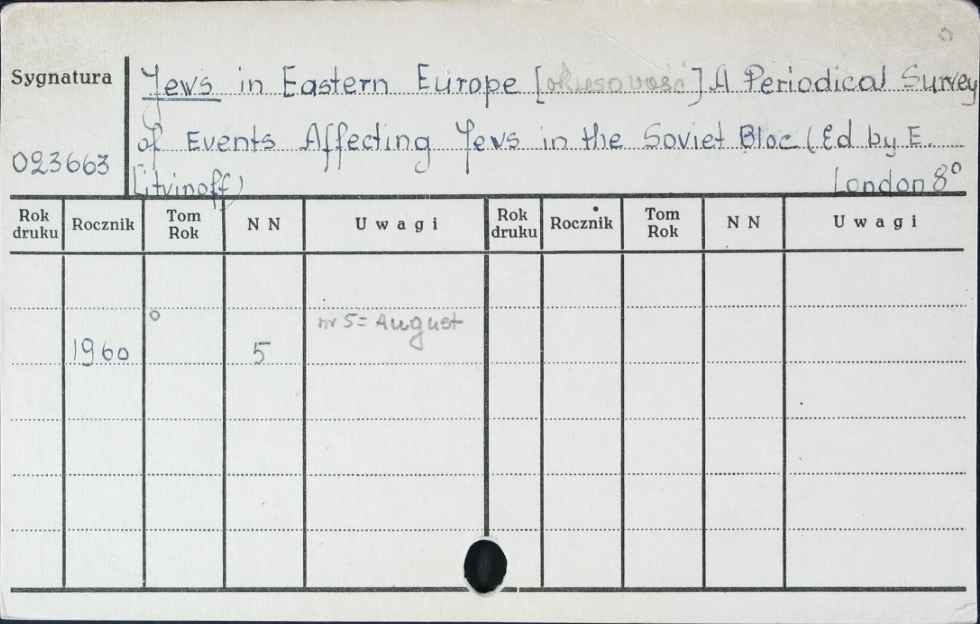 Sygnatura
Jews in Eastern Europe [okresowość] A Periodical Survey
of Events Affecting Jews in the Soviet Bloc (Ed by E.
023663
Litvinoff) London 8°
Rok druku Rocznik Tom Rok N N Uwagi Rok druku Rocznik Tom Rok N N Uwagi
nr 5 = August
1960 5